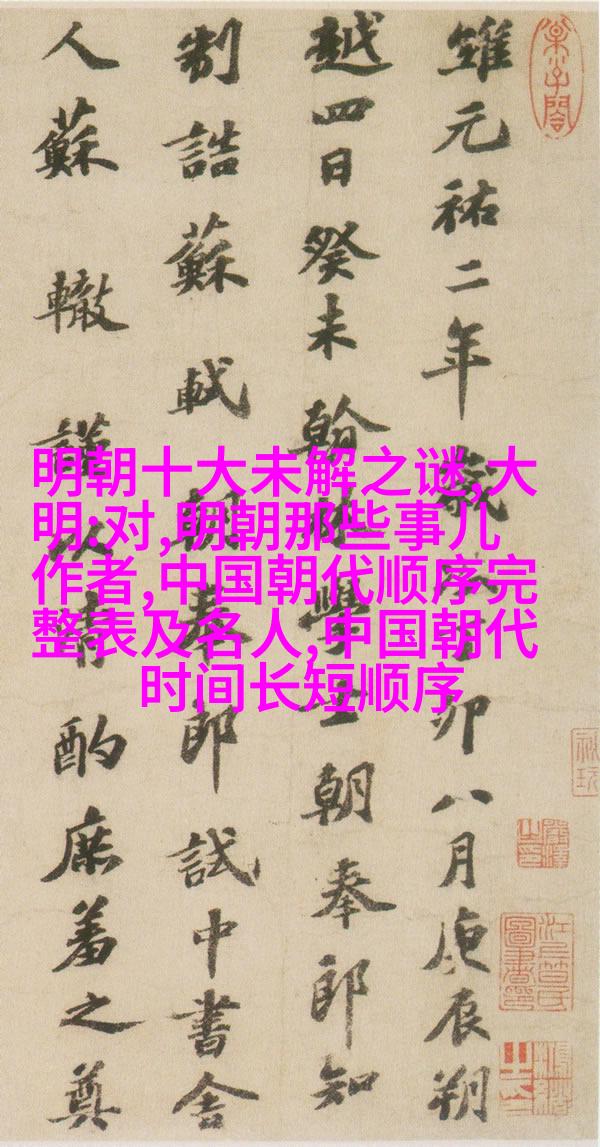 維元祐二年歲次丁卯八月庚辰朔
越四日癸未翰林學士朝奉郎知
制誥蘇軾朝奉郎試中書舍
人蘇轍謹以清酌庶羞之奠
明朝十大未解之谜,大
明:对,明朝那些事儿
作者,中国朝代顺序完
整表及名人,中国朝代
时间长短顺序